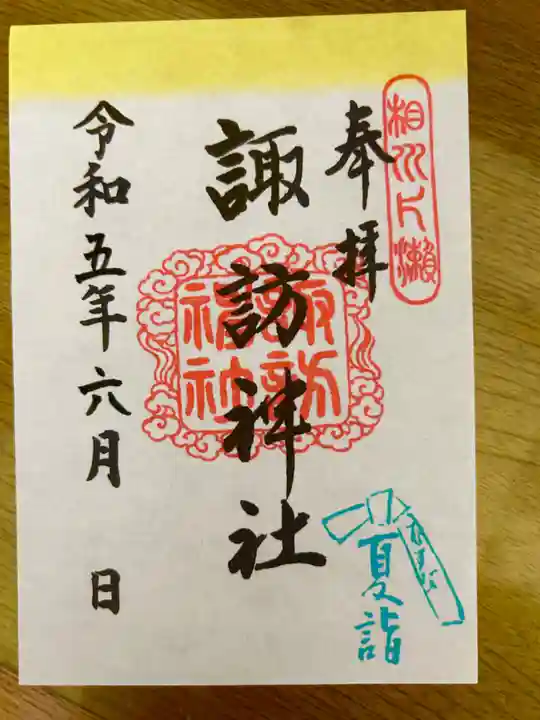 相州片瀬
奉拝
諏訪神社
諏訪
神社
令和五年六月 日
むすび
夏詣